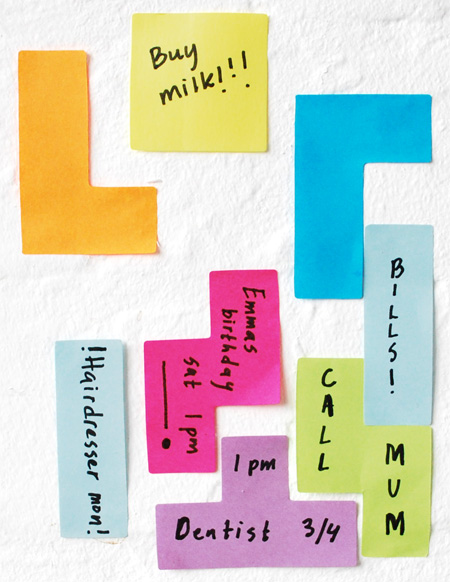 Buy
milk!!!
BILLS!
Emmas
birthday
sat 1 pm
!Hairdresser mon!
CALL
MUM
1 pm
Dentist 3/4